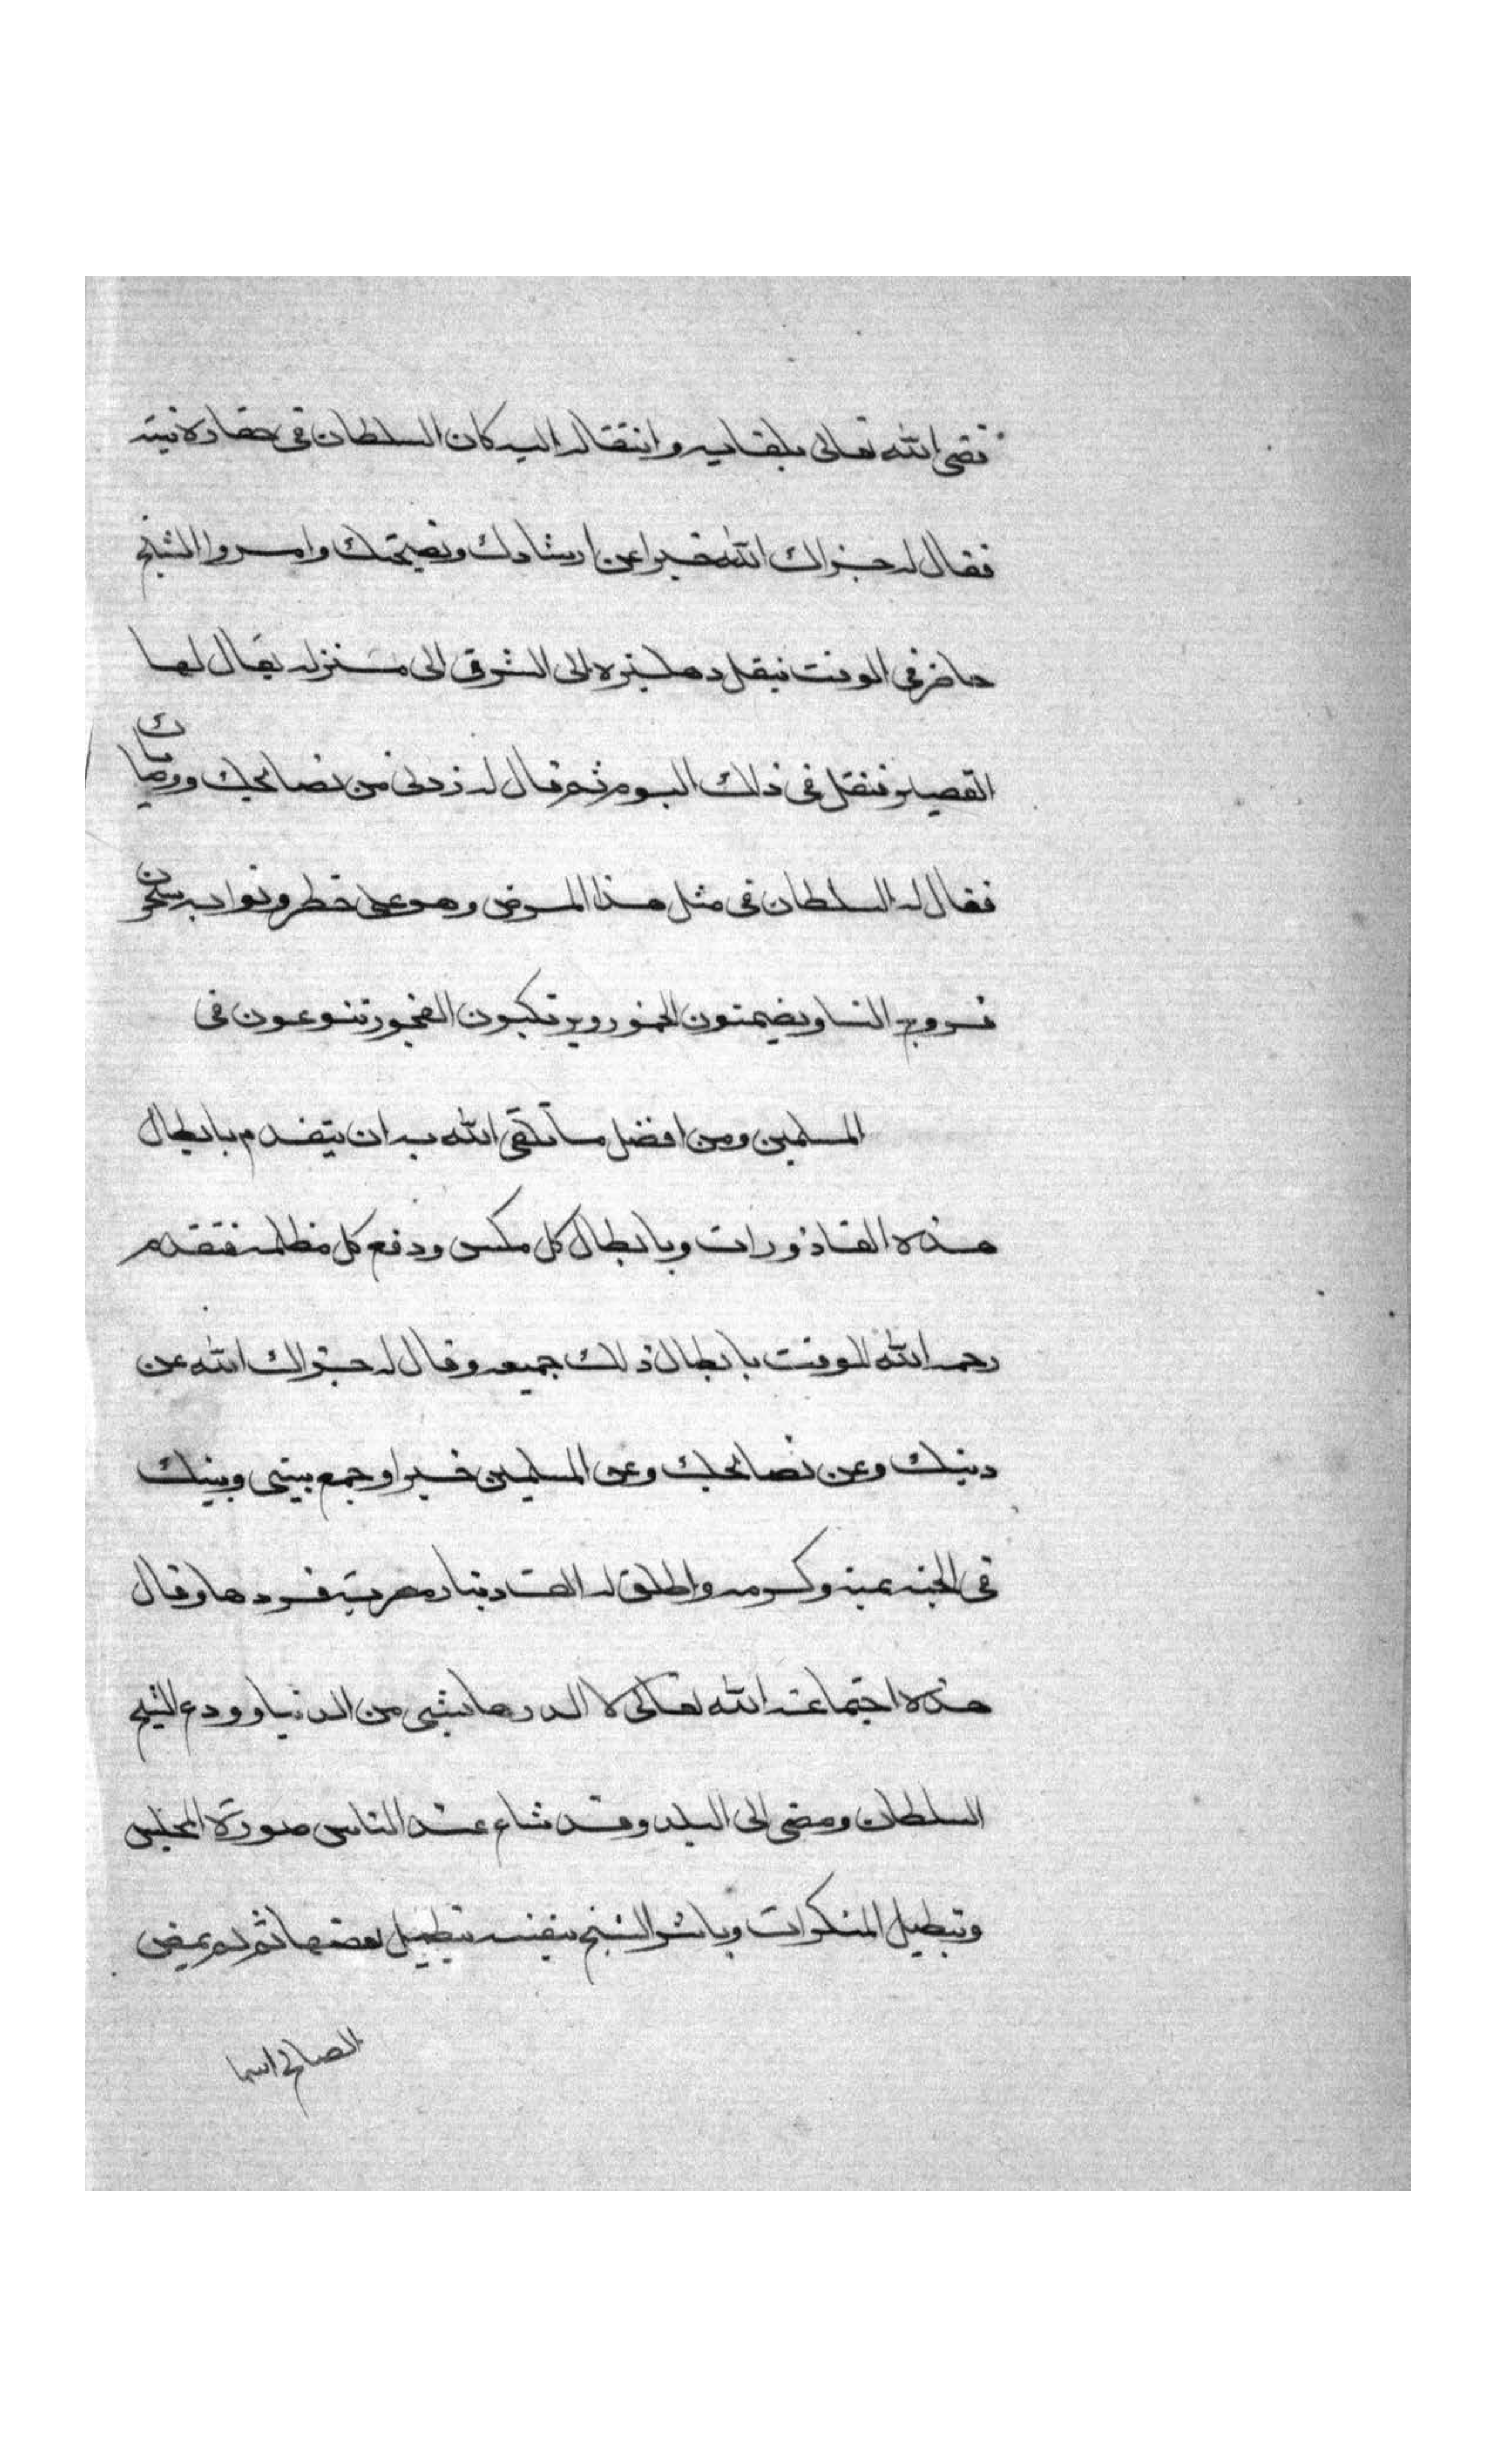 قضى الله تعالى بلقايه وانتقاله اليه كان السلطان فى خفارة نيته
فقال له جزاك الله خيرا عن ارشادك ونصيحتك وامر والشيخ
حاضر فى الوقت بنقل دهليزه الى الشرق الى منزله يقال لها
القصير فنقل فى ذلك اليوم ثم قال له زدنى من نصائحك ووصياك
فقال له السلطان فى مثل هذا المرض وهو على خطر ونوابه يبيحون
فروج النسا ويضمنون الخمور ويرتكبون الفجور يتنوعون فى
المسلمين ومن افضل ما تلقى الله به ان يتقدم بابطال
هذه القاذورات وبابطال كل مكس ودفع كل مظلمه فتقدم
رحمه الله للوقت بابطال ذلك جميعه وقال له جزاك الله عن
دينك وعن نصائحك وعن المسلمين خيرا وجمع بينى وبينك
فى الجنه بمنه وكرمه واطلق له الف دينار مصرية فردها وقال
هذه اجتماعة الله تعالى لا اكدرها بشى من الدنيا وودع الشيخ
السلطان ومضى الى البلد وقد شاع عند الناس صورة المجلس
وتبطيل المنكرات وباشر الشيخ بنفسه تبطيل بعضها ثم لم يمض
الصالح اسما